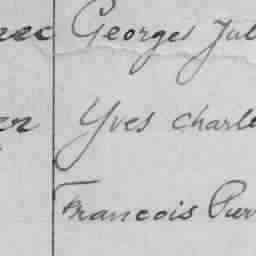 Georges Jul
Yves Charle
Francois Pier